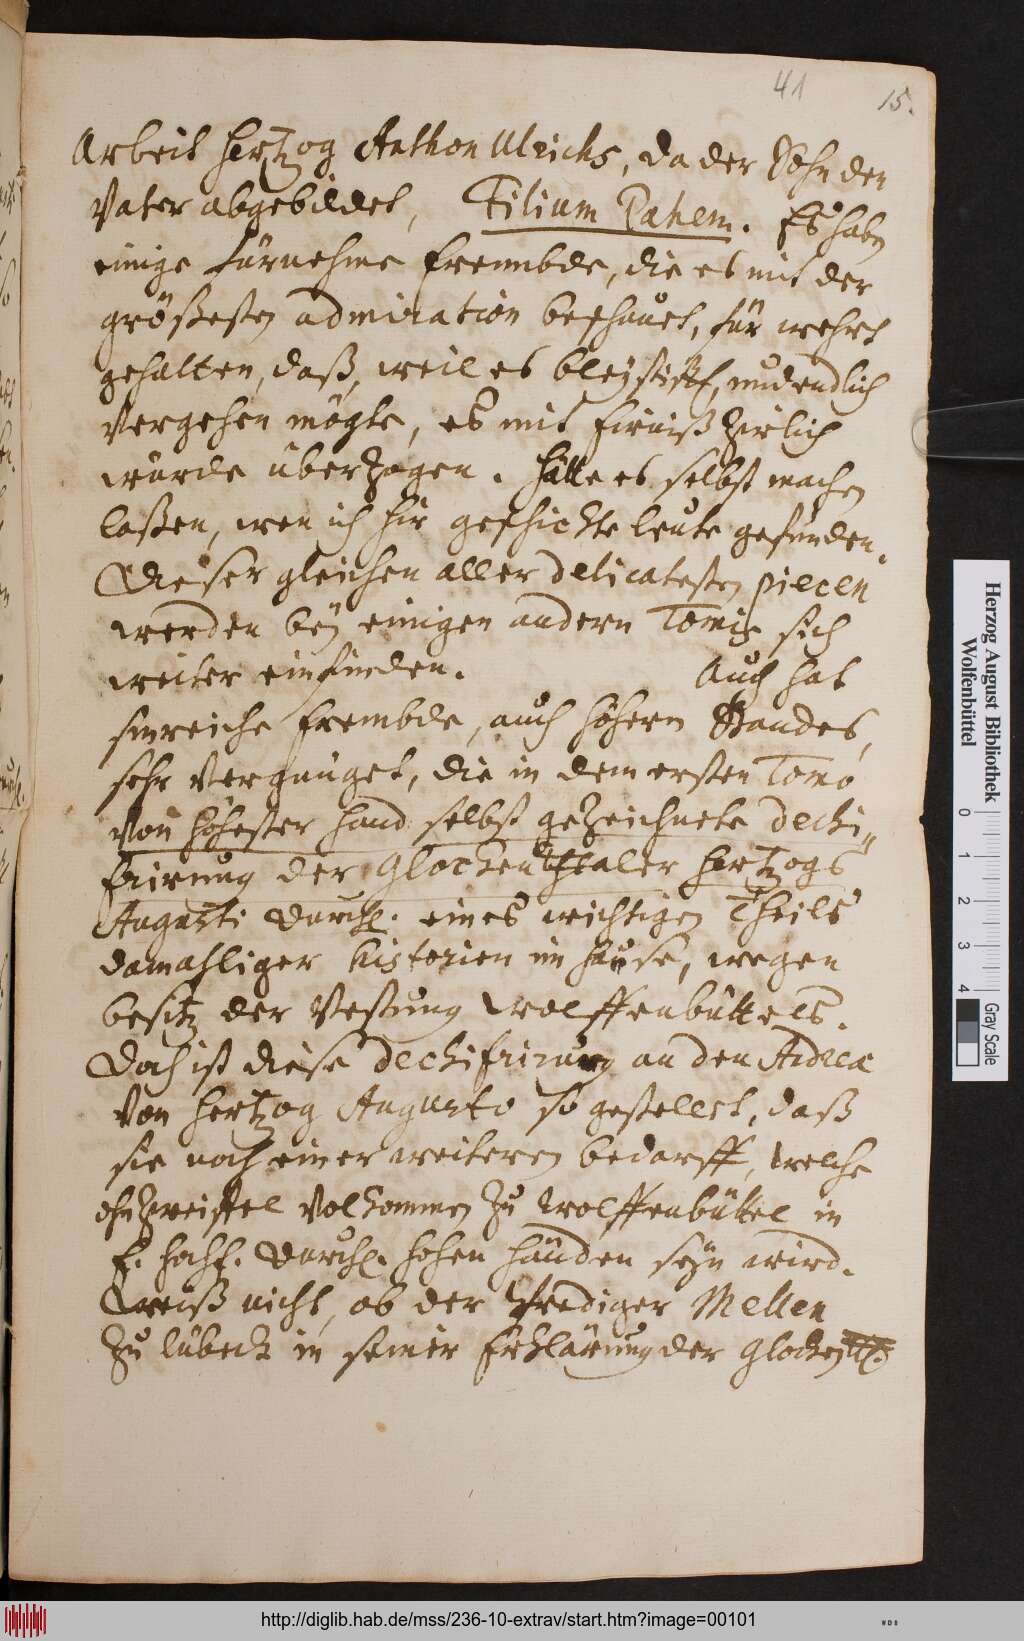 41 15.
Arbeit Hertzog Anthon Ulrichs, da der Sohn den
Vater abgebildet, Filium Patrem. Es habn
einige fürnehme frembde, die es mit der
größesten admiration beschauet, für wehrt
gehalten, daß, weil es bleystifft, und endlich
vergehen mögte, es mit firniß zierlich
würde überzogen. Hätte es selbst machen
laßen, wen ich hir geschickte leute gefunden.
Dieser gleichen aller delicatesten piecen
werden bey einigen andern Tomis sich
weiter einfinden. Auch hat
sinreiche frembde, auch höhern Standes,
sehr vergnüget, die in dem ersten Tomo
von höhester hand selbst gezeichnete dechi-
frirung der Glockenthaler Hertzogs
Augusti Durchl. eines wichtigen Theils
damahliger historien im Hause, wegen
besitz der Vestung Wolffenbüttels.
Doch ist diese dechifrirung an den Andreæ
von Hertzog Augusto so gestellet, daß
sie noch einer weiteren bedarff, welche
ohn Zweiffel Volkommen zu Wolffenbüttel in
E. Hochf. Durchl. hohen händen seyn wird.
Weiß nicht, ob der Prediger Mellen
zu Lübeck in seiner Erklärung der Glocken
Herzog August Bibliothek
Wolfenbüttel
0 1 2 3 4
Gray Scale
http://diglib.hab.de/mss/236-10-extrav/start.htm?image=00101